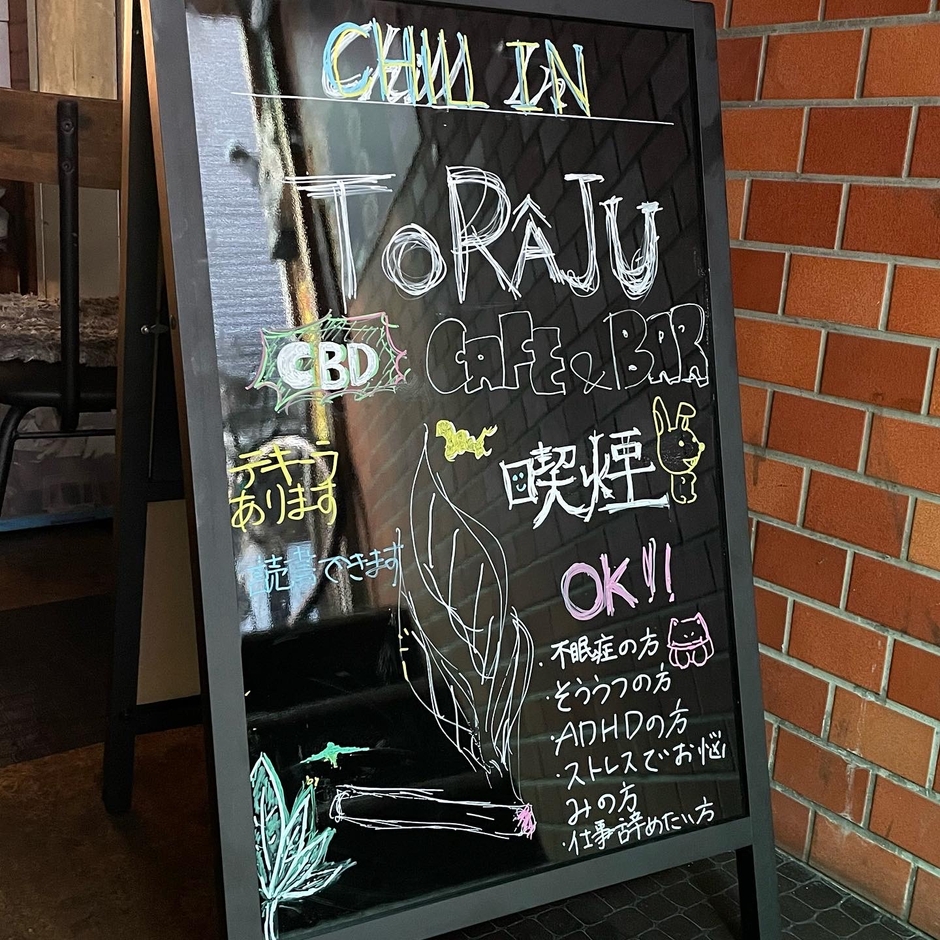 CHILL IN
ToRÂJU
CBD
CAFE & BAR
テキーラ
あります
読書できます
喫煙
OK!!
・不眠症の方
・そううつの方
・ADHDの方
・ストレスでお悩
みの方
・仕事辞めたい方